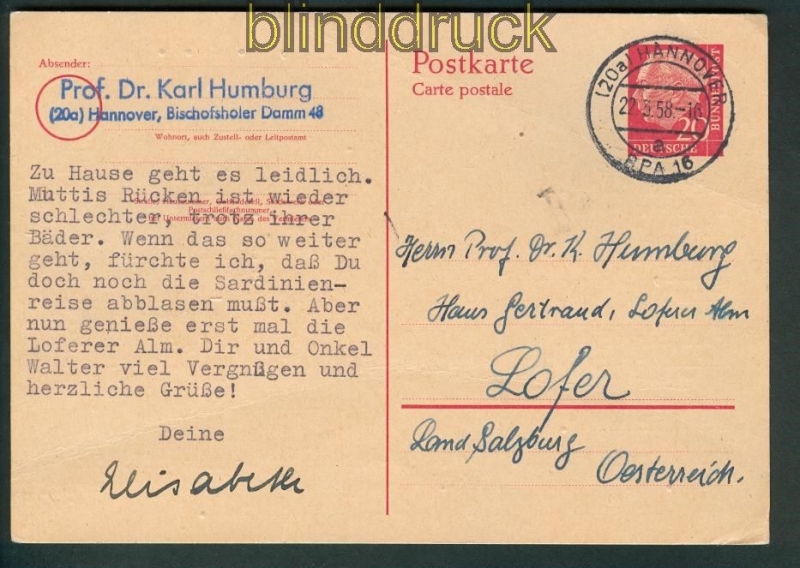 blinddruck
Absender:
Prof. Dr. Karl Humburg
(20a) Hannover, Bischofsholer Damm 48
Wohnort, auch Zustell- oder Leitpostamt
Zu Hause geht es leidlich.
Muttis Rücken ist wieder
schlechter, trotz ihrer
Bäder. Wenn das so weiter
geht, fürchte ich, daß Du
doch noch die Sardinien-
reise abblasen mußt. Aber
nun genieße erst mal die
Loferer Alm. Dir und Onkel
Walter viel Vergnügen und
herzliche Grüße!
Deine
Elisabeth
Postkarte
Carte postale
(20a) HANNOVER
22.5.58
a
BPA 16
20
DEUTSCHE
Herrn Prof. Dr. K. Humburg
Haus Gertrand, Loferer Alm
Lofer
Land Salzburg
Oesterreich.